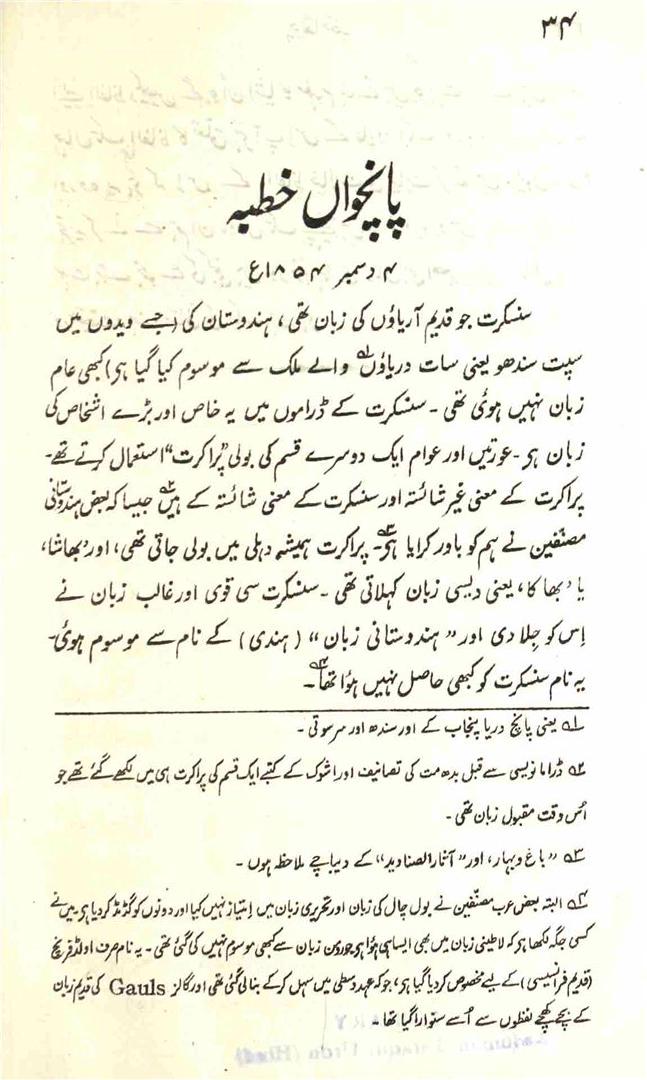 ۳۴
پانچواں خطبہ
۴ دسمبر ۱۸۵۴ع
سنسکرت جو قدیم آریاؤں کی زبان تھی، ہندوستان کی (جسے ویدوں میں
سپت سندھو یعنی سات دریاؤں۱ والے ملک سے موسوم کیا گیا ہی) کبھی عام
زبان نہیں ہوئی تھی ۔ سنسکرت کے ڈراموں میں یہ خاص اور بڑے اشخاص کی
زبان ہی ۔ عورتیں اور عوام ایک دوسرے قسم کی بولی "پراکرت" استعمال کرتے تھے۔
پراکرت کے معنی غیر شائستہ اور سنسکرت کے معنی شائستہ کے ہیں۲ جیسا کہ بعض ہندوستانی
مصنّفین نے ہم کو باور کرایا ہی۳۔ پراکرت ہمیشہ دہلی میں بولی جاتی تھی، اور 'بھاشا،
یا 'بھاکا، یعنی دیسی زبان کہلاتی تھی ۔ سنسکرت سی قوی اور غالب زبان نے
اِس کو جِلا دی اور "ہندوستانی زبان" (ہندی) کے نام سے موسوم ہوئی۔
یہ نام سنسکرت کو کبھی حاصل نہیں ہؤا تھا۴۔
۱ یعنی پانچ دریا پنجاب کے اور سندھ اور سرسوتی ۔
۲ ڈراما نویسی سے قبل بدھ مت کی تصانیف اور اشوک کے کتبے ایک قسم کی پراکرت ہی میں لکھے گئے تھے جو
اُس وقت مقبول زبان تھی ۔
۳ "باغ و بہار، اور "آثار الصنادید" کے دیباچے ملاحظہ ہوں ۔
۴ البتہ بعض عرب مصنّفین نے بول چال کی زبان اور تحریری زبان میں اِمتیاز نہیں کیا اور دونوں کو گڈمڈ کر دیا ہی۔ میں نے
کسی جگہ لکھا ہی کہ لاطینی زبان میں بھی ایسا ہی ہؤا ہی جو رومن زبان سے کبھی موسوم نہیں کی گئی تھی ۔ یہ نام صرف اولڈ فرنچ
(قدیم فرانسیسی) کے لیے مخصوص کر دیا گیا ہی، جو کہ عہد وسطیٰ میں سہل کر کے بنالی گئی تھی اور گالز Gauls کی قدیم زبان
کے بچے کھچے لفظوں سے اُسے سنوارا گیا تھا ۔